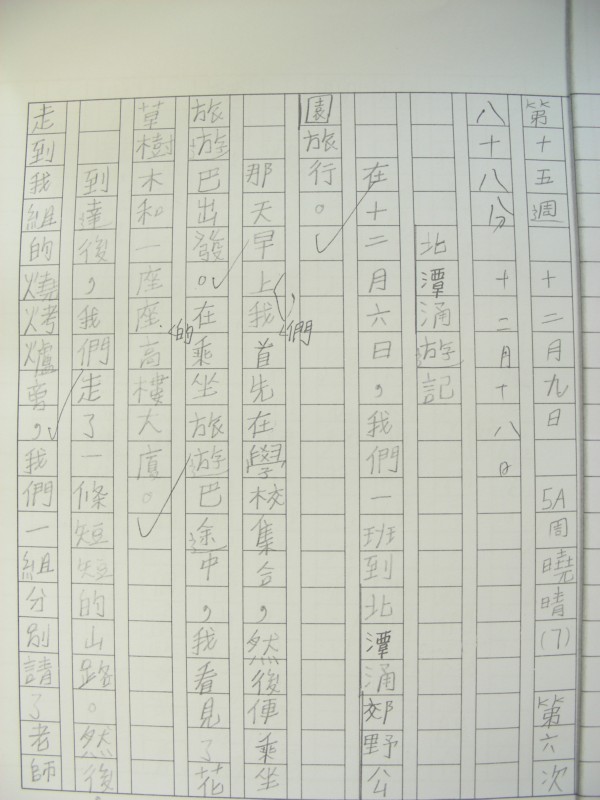 第十五週 十二月九日 5A周曉晴(7) 第六次
八十八分 十二月十八日
北潭涌遊記
在十二月六日，我們一班到北潭涌郊野公
園旅行。
那天早上，我們首先在學校集合，然後便乘坐
旅遊巴出發。在乘坐旅遊巴途中，我看見了花
草樹木和一座座的高樓大廈。
到達後，我們走了一條短短的山路。然後
走到我組的燒烤爐旁，我們一組分別請了老師